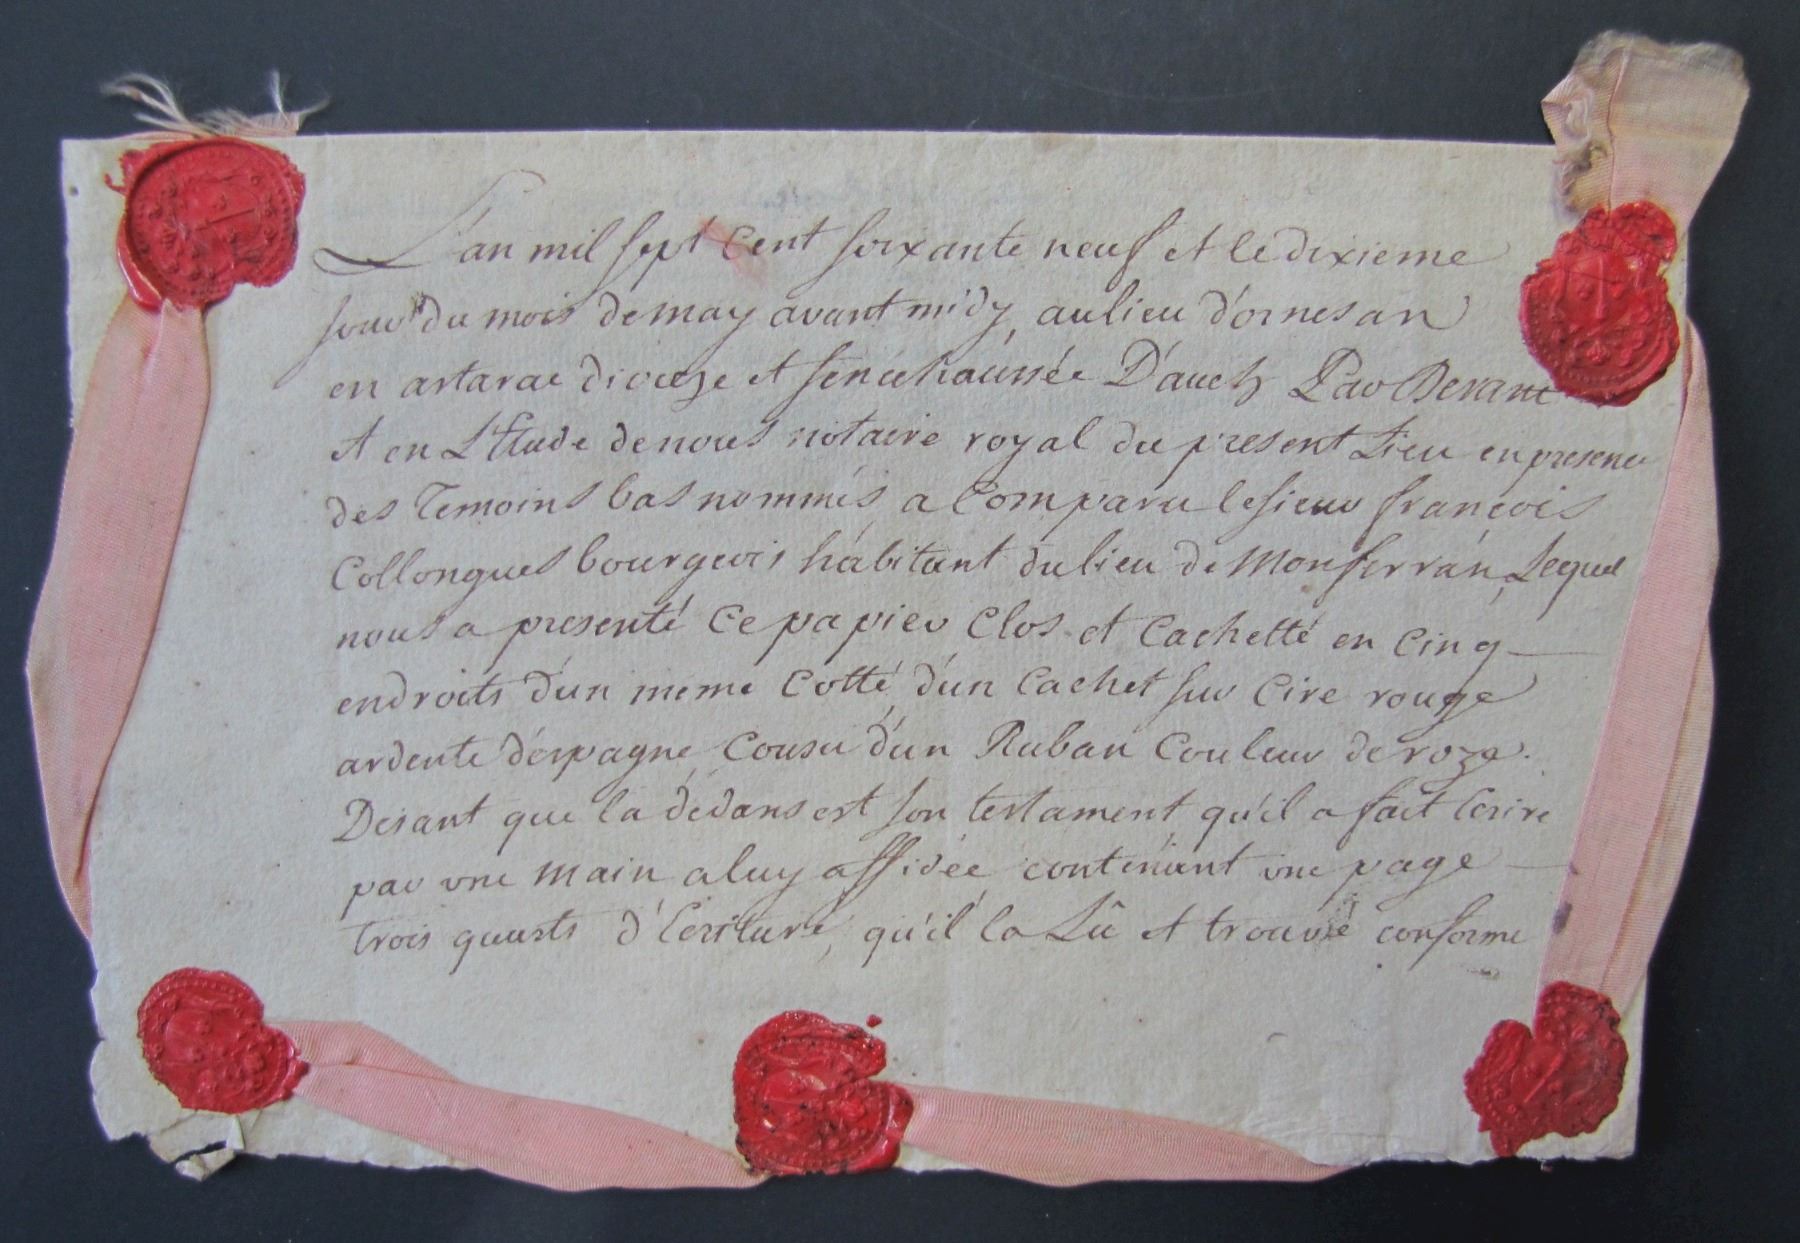 L'an mil sept cent soixante neuf et le dixieme
jour du mois de may avant midy, au lieu d'ornesan
en astarac dioceze et sénéchaussée D'auch Par Devant
et en L'Etude de nous notaire royal du present Lieu en presence
des Temoins bas nommés, a Comparu le sieur françois
Collongues bourgeois habitant du lieu de Monferran, Lequel
nous a presenté Ce papier Clos et Cachetté en Cinq
endroits d'un meme Cotté, d'un Cachet sur Cire rouge
ardente d'espagne, Cousu d'un Ruban Couleur de roze.
Disant que la dédans est son testament qu'il a fait Ecrire
par une main a luy affidée contenant une page
trois quarts d'Ecriture, qu'il la Lû et trouvé conforme